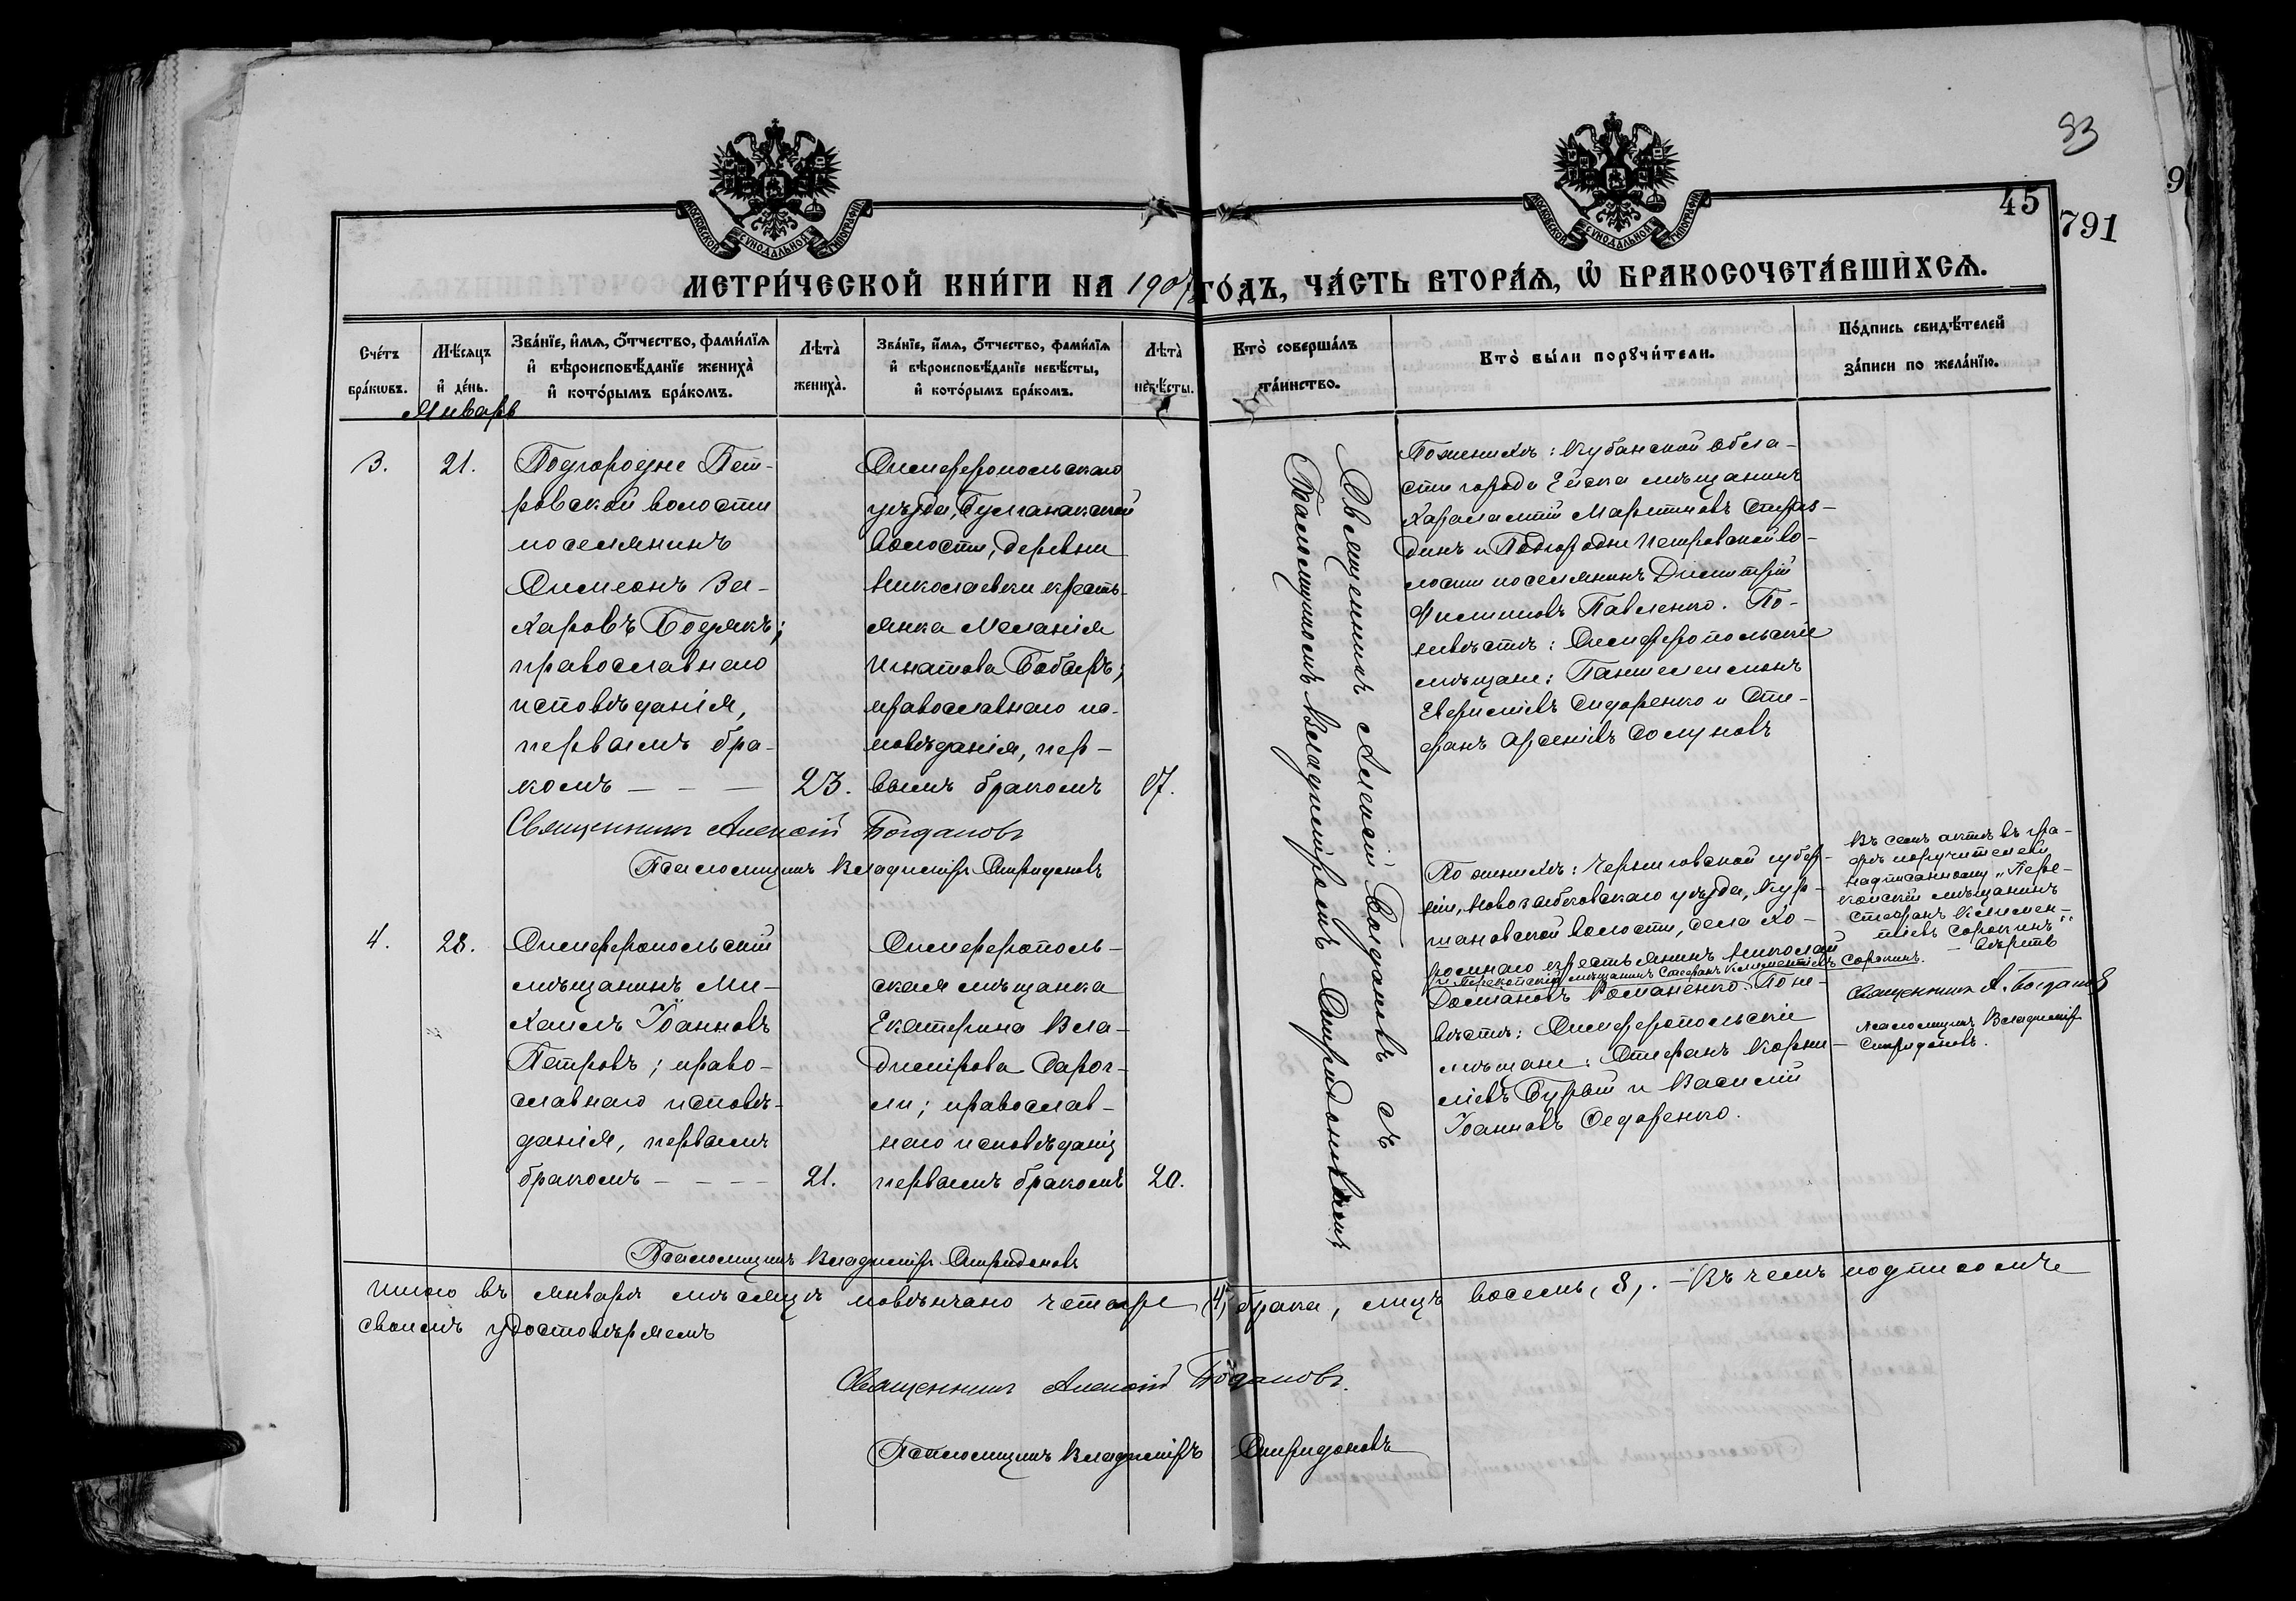 93
45
791
9
МОСКОВСКОЙ СѴНОДАЛЬНОЙ ТИПОГРАФІИ
МОСКОВСКОЙ СѴНОДАЛЬНОЙ ТИПОГРАФІИ
МЕТРИ́ЧЕСКОЙ КНИ́ГИ НА 1907 ГО́ДЪ, ЧА́СТЬ ВТОРА́Ѧ, Ѡ҆ БРАКОСОЧЕТА́ВШИХСѦ.
Сче́тъ
бра́кѡвъ.
Мѣ́сѧцъ
и҆ де́нь.
Зва́нїе, и҆́мѧ, ѻ҆́тчество, фами́лїѧ
и҆ вѣроисповѣ́данїе жениха̀
и҆ кото́рымъ бра́комъ.
Лѣта̀
жениха̀.
Зва́нїе, и҆́мѧ, ѻ҆́тчество, фами́лїѧ
и҆ вѣроисповѣ́данїе невѣ́сты,
и҆ кото́рымъ бра́комъ.
Лѣта̀
невѣ́сты.
Кто̀ соверша́лъ
та́инство.
Кто̀ бы́ли порꙋчи́тели.
По́дпись свидѣ́телей
за́писи по жела́нїю.
Январь
3.
21.
Подгородне Пет-
ровской волости
поселянинъ
Симеонъ За-
харовъ Бодякъ;
православнаго
исповѣданія,
первымъ бра-
комъ — — —
23.
Симферопольскаго
уѣзда, Булганакской
волости, деревни
Николаевки кресть-
янка Меланія
Игнатова Бобырь;
православнаго ис-
повѣданія, пер-
вымъ бракомъ
17.
Священникъ Алексій Богдановъ
Псаломщикъ Владиміръ Спиридоновъ
Священникъ Алексій Богдановъ съ
Псаломщикомъ Владиміромъ Спиридоновымъ
По женихѣ: Кубанской Обла-
сти города Ейска мѣщанинъ
Харалампій Мартиновъ Спири-
динъ и Подгородне Петровской во-
лости поселянинъ Димитрій
Филиповъ Павленко. По-
невѣстѣ: Симферопольскіе
мѣщане: Пантелеимонъ
Сидоренко и Сте-
фанъ Арсеніевъ Солуновъ
4.
28.
Симферопольскій
мѣщанинъ Ми-
хаилъ Іоанновъ
Петровъ; право-
славнаго исповѣ-
данія, первымъ
бракомъ — — — —
21.
Симферополь-
ская мѣщанка
Екатерина Вла-
димірова Сарог-
ли; православ-
наго исповѣданія
первымъ бракомъ
20.
По женихѣ: Черниговской губер-
ніи, Новозыбковскаго уѣзда, Кур-
шановской волости, села Хо-
ромнаго крестьянинъ Николай
и Перекопскій мѣщанинъ Стефанъ Климентіевъ Сорокинъ.
Романенко. По не-
вѣстѣ: Симферопольскіе
мѣщане: Стефанъ Корни-
ліевъ Бурый и Василій
Іоанновъ Сидоренко.
Въ семъ актѣ въ гра-
фѣ поручителей
надписанному „Пере-
копскій мѣщанинъ
Стефанъ Климен-
тіевъ Сорокинъ“
— вѣрить
Священникъ А. Богдановъ
Псаломщикъ Владиміръ
Спиридоновъ.
Псаломщикъ Владиміръ Спиридоновъ
Итого въ Январѣ мѣсяцѣ повѣнчано четыре (4) брака, лицъ восемь (8). — Въ чемъ подписомъ
своимъ удостовѣряемъ
Священникъ Алексій Богдановъ.
Псаломщикъ Владиміръ Спиридоновъ